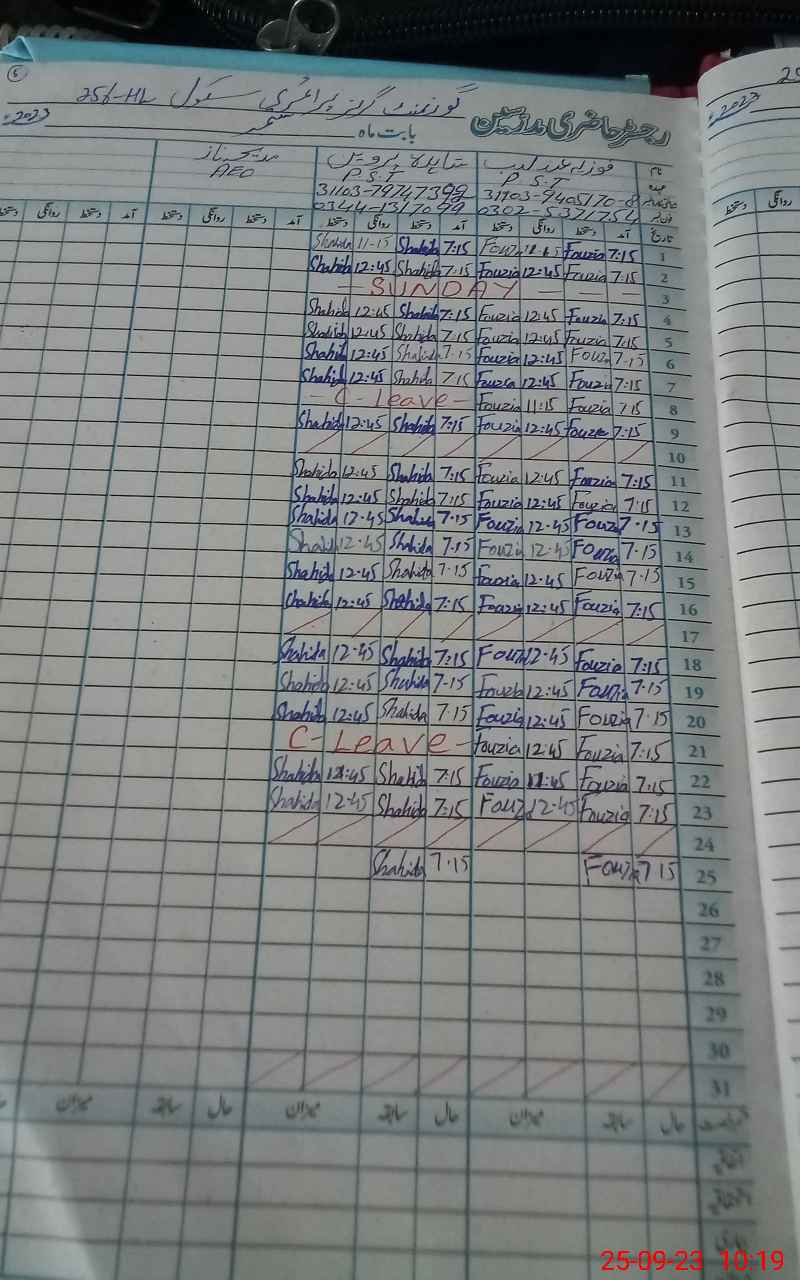 گورنمنٹ گرلز پرائمری سکول 256-HL
رجسٹر حاضری مدرسین بابت ماہ ستمبر 2023ء
نام فوزیہ عندلیب شاہدہ پروین مدیحہ ناز
عہدہ P.S.T P.S.T AEO
31103-9405170-8 31103-7974739
0302-5371754 0344-1317099
تاریخ آمد دستخط روانگی دستخط آمد دستخط روانگی دستخط آمد دستخط روانگی دستخط آمد دستخط روانگی دستخط
1 7:15 Fouzia Fouzia 7:15 Shahida 11-15 Shahida
2 7:15 Fouzia 12:45 Fouzia 7:15 Shahida 12:45 Shahida
3 — SUNDAY —
4 7:15 Fouzia 12:45 Fouzia 7:15 Shahida 12:45 Shahida
5 7:15 Fouzia 12:45 Fouzia 7:15 Shahida 12:45 Shahida
6 7-15 Fouzia 12:45 Fouzia 7-15 Shahida 12:45 Shahida
7 7:15 Fouzia 12:45 Fouzia 7:15 Shahida 12:45 Shahida
8 7:15 Fouzia 11:15 Fouzia - C - Leave -
9 7:15 Fouzia 12:45 Fouzia 7:15 Shahida 12:45 Shahida
10
11 7:15 Fouzia 12:45 Fouzia 7:15 Shahida 12:45 Shahida
12 7:15 Fouzia 12:45 Fouzia 7:15 Shahida 12:45 Shahida
13 7-15 Fouzia 12-45 Fouzia 7-15 Shahida 12-45 Shahida
14 7-15 Fouzia 12-45 Fouzia 7-15 Shahida 12-45 Shahida
15 7-15 Fouzia 12-45 Fouzia 7-15 Shahida 12:45 Shahida
16 7:15 Fouzia 12:45 Fouzia 7:15 Shahida 12:45 Shahida
17
18 7:15 Fouzia 12-45 Fouzia 7:15 Shahida 12-45 Shahida
19 7-15 Fouzia 12:45 Fouzia 7-15 Shahida 12:45 Shahida
20 7-15 Fouzia 12:45 Fouzia 7-15 Shahida 12:45 Shahida
21 7:15 Fouzia 12:45 Fouzia C-Leave-
22 7:15 Fouzia Fouzia 7:15 Shahida Shahida
23 7:15 Fouzia 12-45 Fouzia 7:15 Shahida 12-45 Shahida
24
25 7 15 Fouzia 7-15 Shahida
26
27
28
29
30
31
حال سابقہ میزان حال سابقہ میزان حال سابقہ میزان
25-09-23 10:19